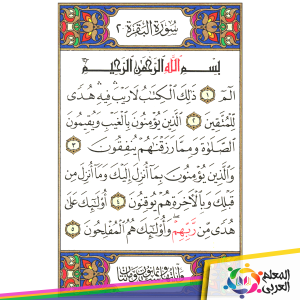 سُورَةُ الْبَقَرَةِ ٢
بِسْمِ اللَّهِ الرَّحْمَٰنِ الرَّحِيمِ
الٓمٓ ١ ذَٰلِكَ الْكِتَابُ لَا رَيْبَ فِيهِ هُدًى
لِّلْمُتَّقِينَ ٢ الَّذِينَ يُؤْمِنُونَ بِالْغَيْبِ وَيُقِيمُونَ
الصَّلَوٰةَ وَمِمَّا رَزَقْنَاهُمْ يُنفِقُونَ ٣
وَالَّذِينَ يُؤْمِنُونَ بِمَا أُنزِلَ إِلَيْكَ وَمَا أُنزِلَ مِن
قَبْلِكَ وَبِالْآخِرَةِ هُمْ يُوقِنُونَ ٤ أُولَٰئِكَ عَلَىٰ
هُدًى مِّن رَّبِّهِمْ وَأُولَٰئِكَ هُمُ الْمُفْلِحُونَ ٥
المعلم
العربي